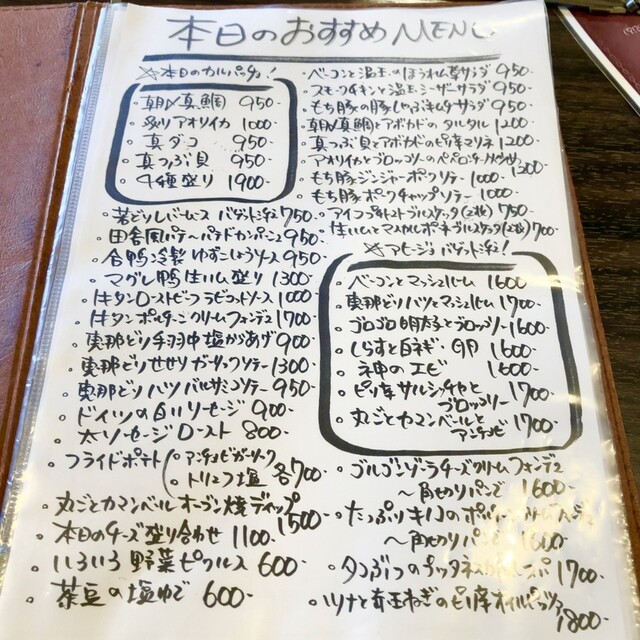 本日のおすすめ MENU
☆本日のカルパッチョ!
・朝〆真鯛 950-
・炙りアオリイカ 1000-
・真ダコ 950-
・真つぶ貝 950-
・4種盛り 1900-
・若どりレバームース バゲット添え 750-
・田舎風パテ〜パテドカンパーニュ 950-
・合鴨冷製ゆずこしょうソース 950-
・マグレ鴨生ハム盛り 1300-
・牛タンローストビーフ ラビゴットソース 1000-
・牛タン クリームフォンデュ 1700-
・恵那どり手羽中塩からあげ 900-
・恵那どりせせりガーリックソテー 1300-
・恵那どりハツ バルサミコソテー 950-
・ドイツの白いソーセージ 900-
・太ソーセージロースト 800-
・フライドポテト
・アンチョビガーリック
・トリュフ塩 各700-
・丸ごとカマンベールオーブン焼ディップ 1500-
・本日のチーズ盛り合わせ 1100-
・いろいろ野菜ピクルス 600-
・茶豆の塩ゆで 600-
・ベーコンと温玉のほうれん草サラダ 950-
・スモークチキンと温玉シーザーサラダ 950-
・もち豚の豚しゃぶキムチサラダ 950-
・朝〆真鯛とアボカドのタルタル 1200-
・真つぶ貝とアボカドのピリ辛マリネ 1200-
・アオリイカとブロッコリーのペペロンチーノ 1200-
・もち豚ジンジャーポークソテー 1000-
・もち豚ポークチャップソテー 1000-
・アイコトマトブルスケッタ(2枚) 750-
・生ハムとマスカルポーネブルスケッタ(2枚) 700-
☆アヒージョ バゲット添え!
・ベーコンとマッシュルーム 1600-
・恵那どりハツとマッシュルーム 1700-
・ゴロゴロ明太子とブロッコリー 1600-
・しらすと白ネギ 1600-
・神のエビ 1600-
・ピリ辛サルシッチャとブロッコリー 1700-
・丸ごとカマンベールとアンチョビ 1700-
・ゴルゴンゾーラチーズクリームフォンデュ
〜角切りパンで 1600-
・たっぷりキノコの
〜角切りパンで 1600-
・タコぶつの 1700-
・ツナと玉ねぎのピリ辛オイルパスタ 1800-